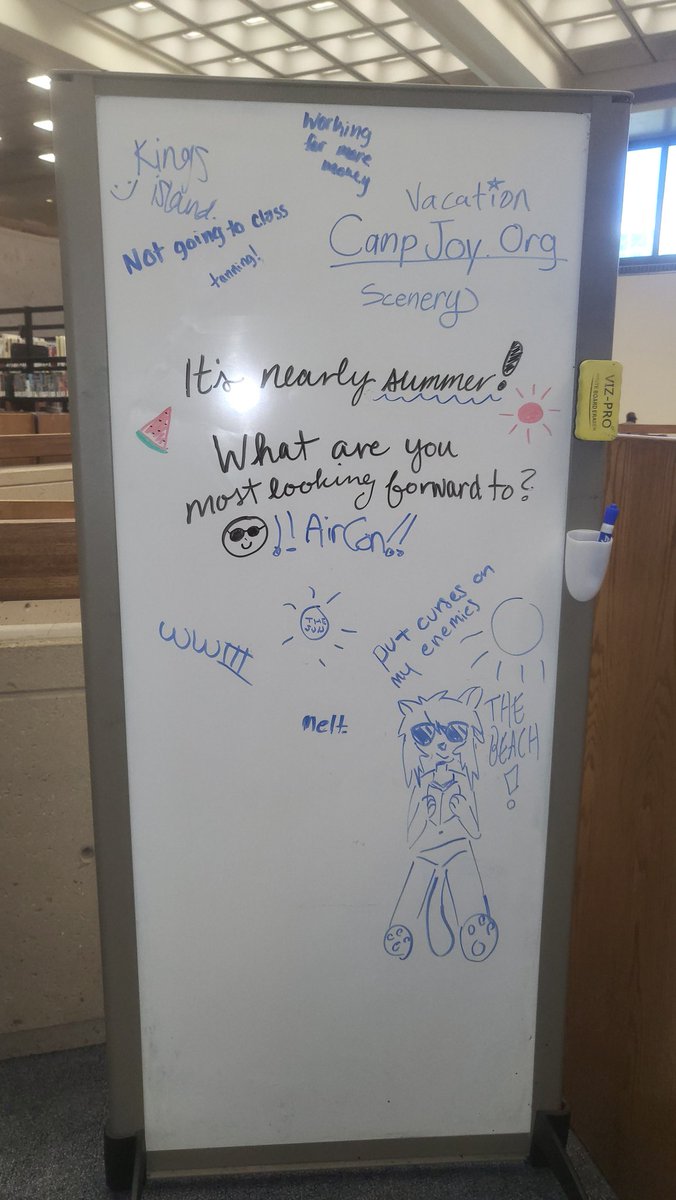 Kings
island.
Working
for more
money
Vacation
CampJoy.Org
Scenery
Not going to class
tanning!
It's nearly summer!
What are you
most looking forward to?
!! AirCon!!
VIZ-PRO
WHITE BOARD ERASER
WWIII
put curses on
my enemies
melt.
THE
BEACH
!